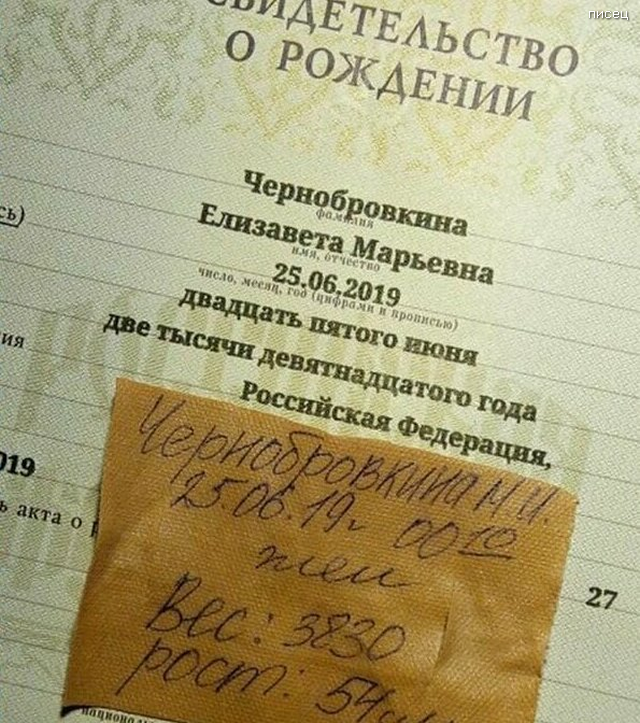 писец
СВИДЕТЕЛЬСТВО
О РОЖДЕНИИ
Чернобровкина
фамилия
Елизавета Марьевна
имя, отчество
25.06.2019
число, месяц, год (цифрами и прописью)
двадцать пятого июня
две тысячи девятнадцатого года
Российская Федерация,
сь)
ия
019
ь акта о р
27
Чернобровкина М.И.
25.06.19г 00 10
жен
Вес: 3830
рост: 54
национальн